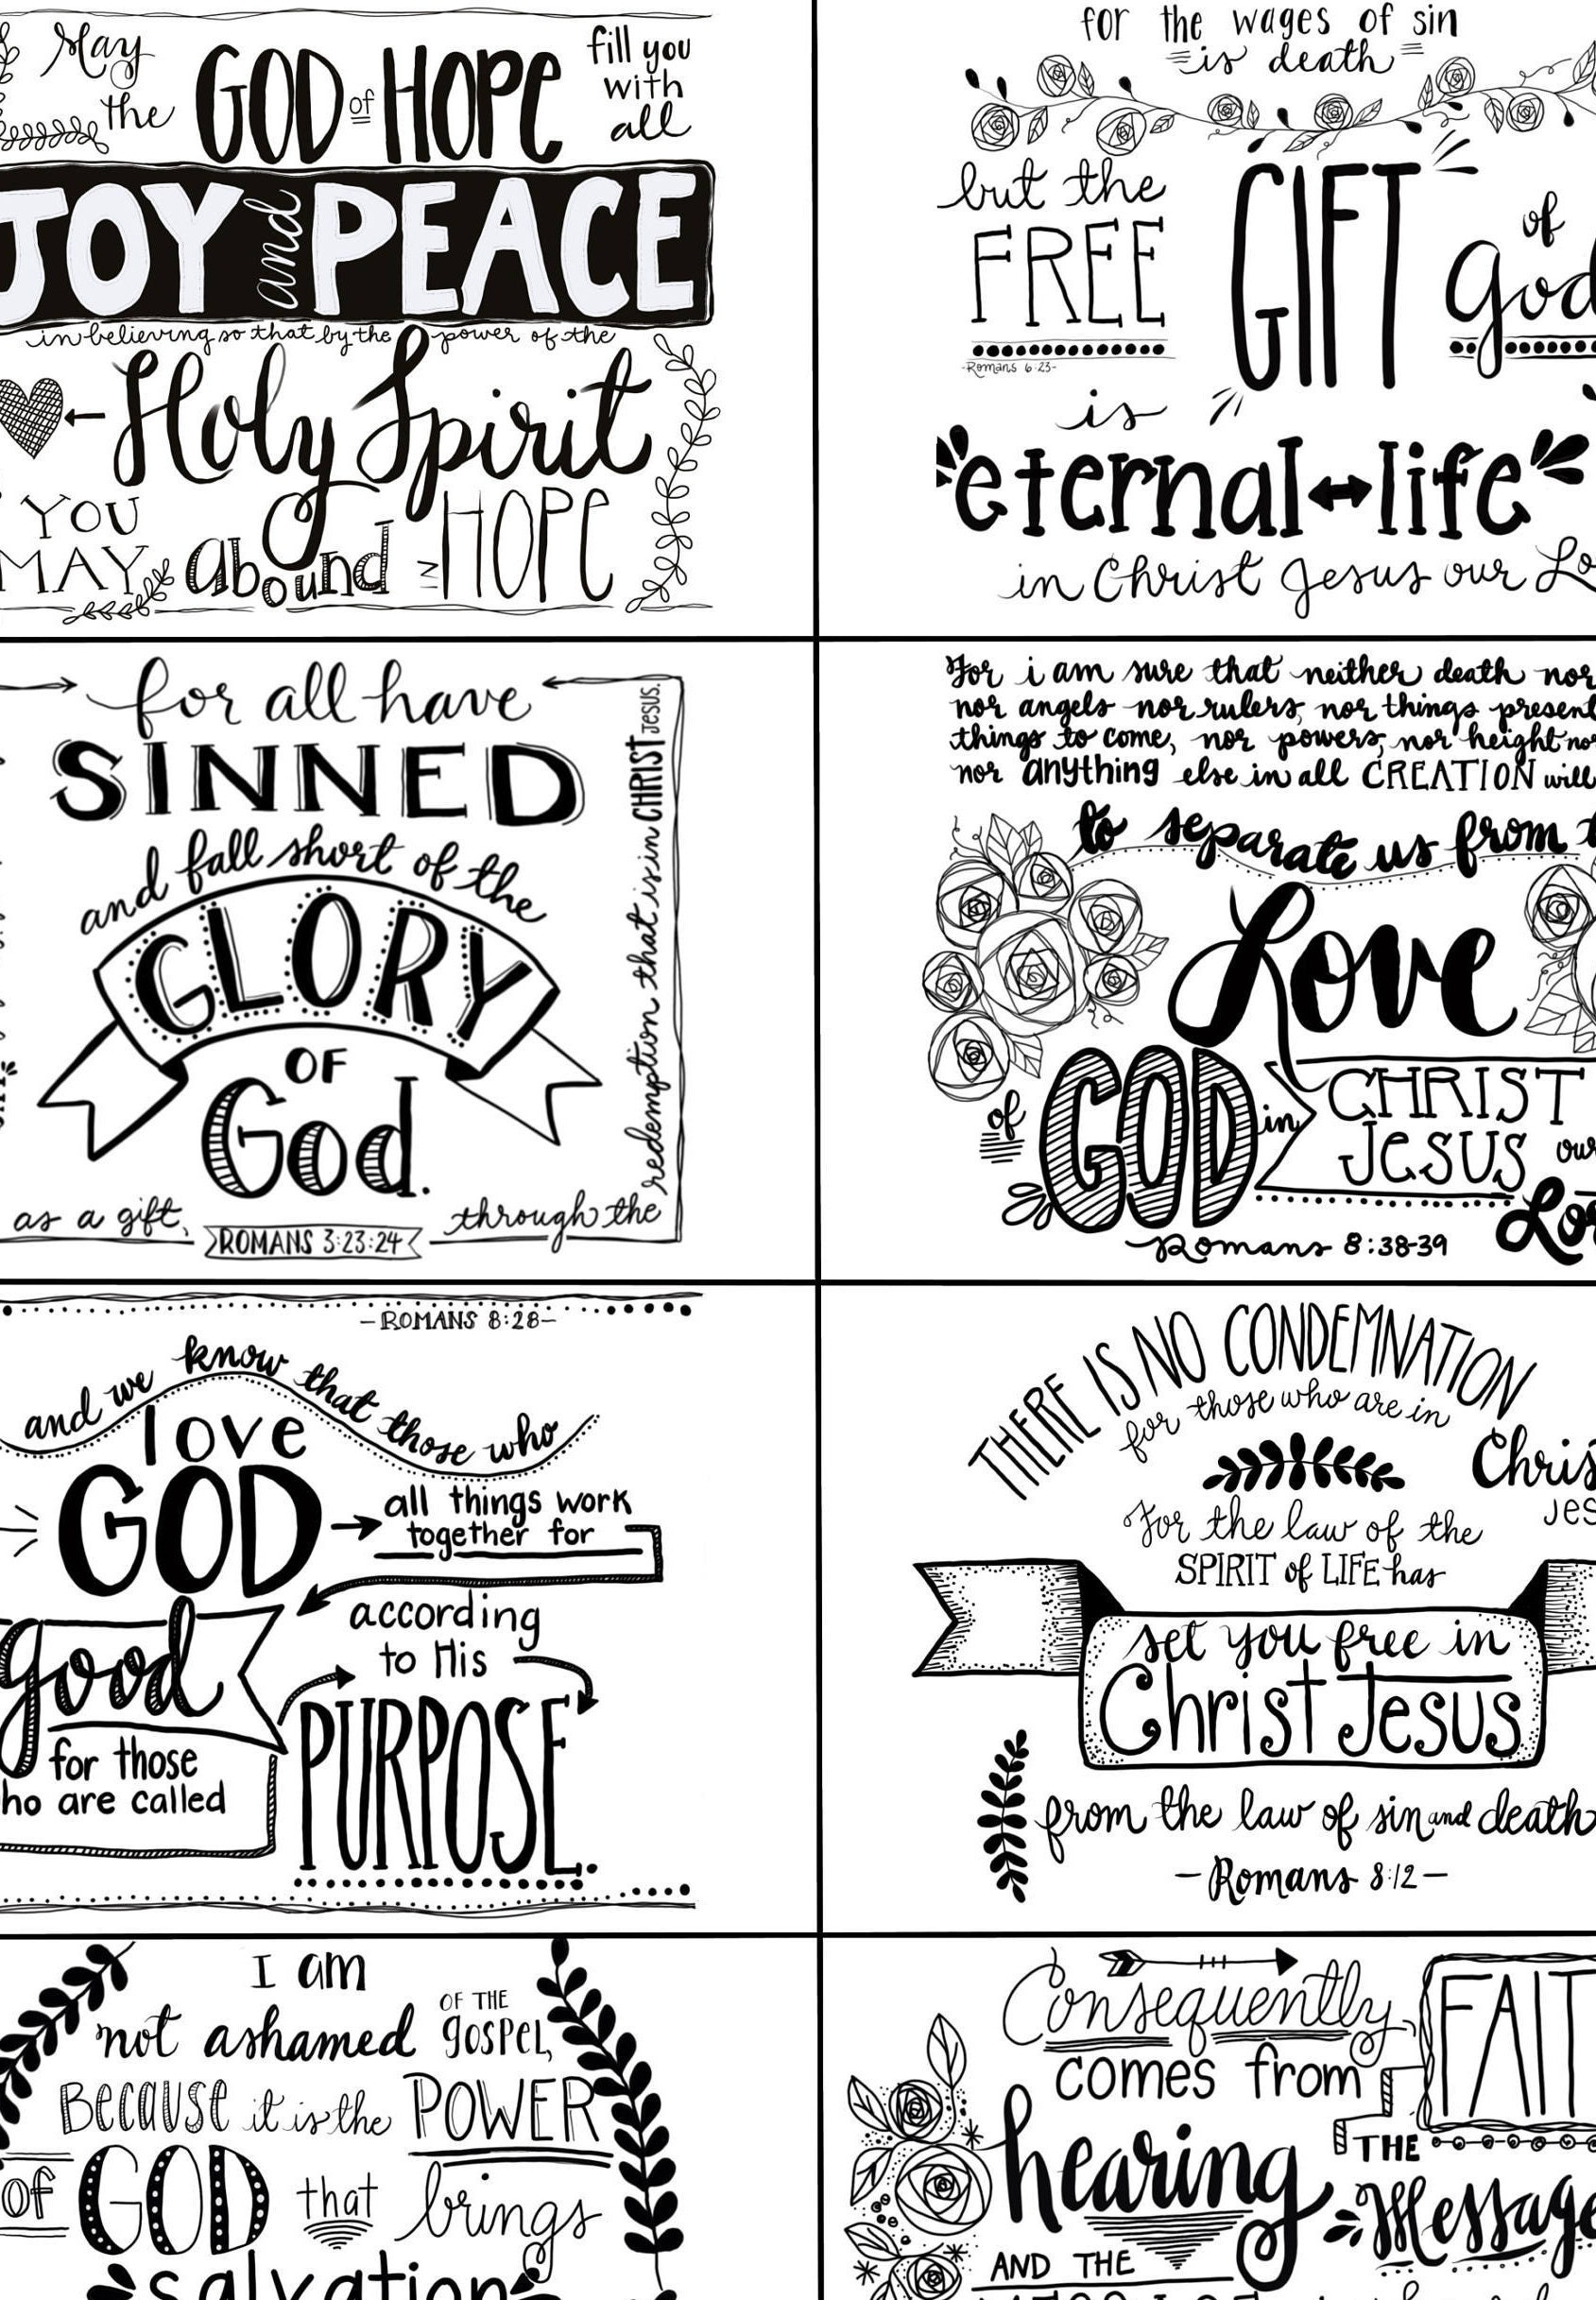 May the GOD of HOPE fill you with all
JOY and PEACE
in believing so that by the power of the
Holy Spirit
YOU MAY abound IN HOPE
for the wages of sin
is death
but the FREE GIFT of God
-Romans 6:23-
is
eternal life
in Christ Jesus our
for all have
SINNED
and fall short of the
GLORY
OF
God.
as a gift,
through the
redemption that is in CHRIST Jesus.
ROMANS 3:23:24
For i am sure that neither death nor
nor angels nor rulers, nor things present
things to come, nor powers, nor height nor
nor anything else in all CREATION will
to separate us from
Love
of GOD in CHRIST JESUS our
Romans 8:38-39
-ROMANS 8:28-
and we know that those who
love
GOD
all things work
together for
good
for those
who are called
according
to His
PURPOSE.
THERE IS NO CONDEMNATION
for those who are in
Chris
Jes
For the law of the
SPIRIT of LIFE has
set you free in
Christ Jesus
from the law of sin and death
- Romans 8:12 -
I am
not ashamed OF THE gospel,
BECAUSE it is the POWER
of GOD that brings
salvation
Consequently,
FAIT
comes from
hearing
THE
Message
AND THE